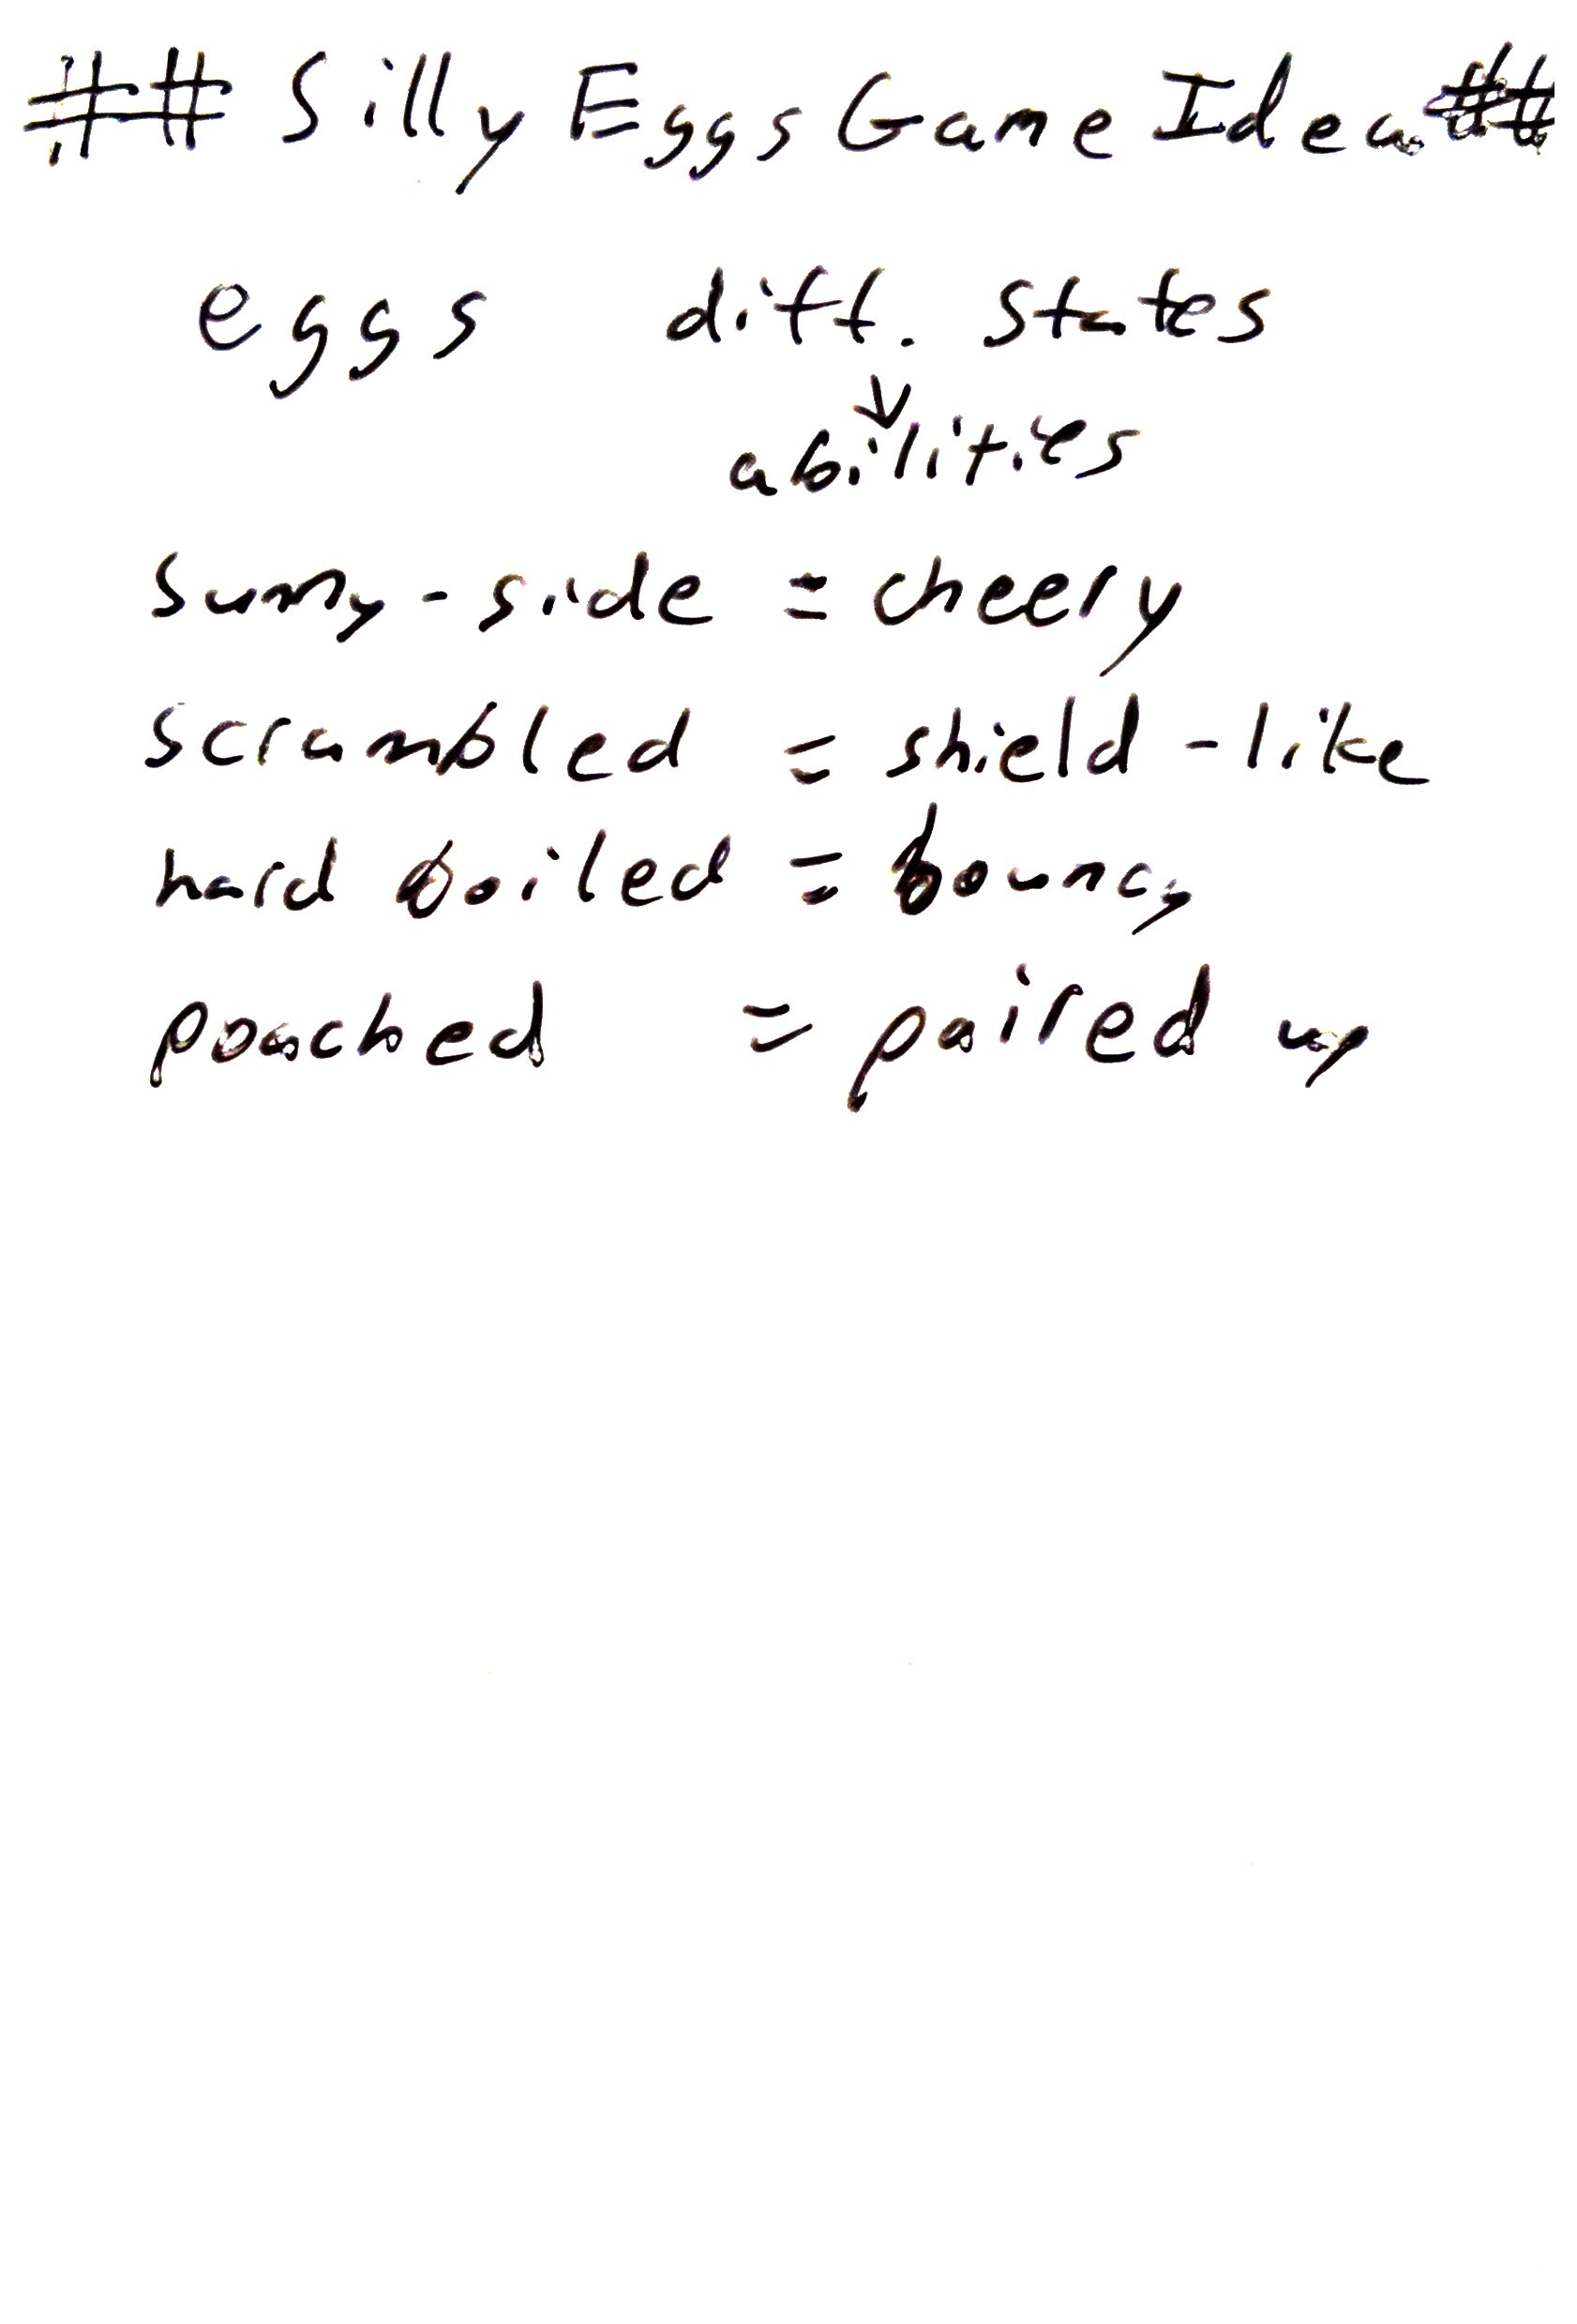 ## Silly Eggs Game Idea ##
eggs diff. states
↓
abilities
sunny-side = cheery
scrambled = shield-like
hard boiled = bouncy
poached = paired up